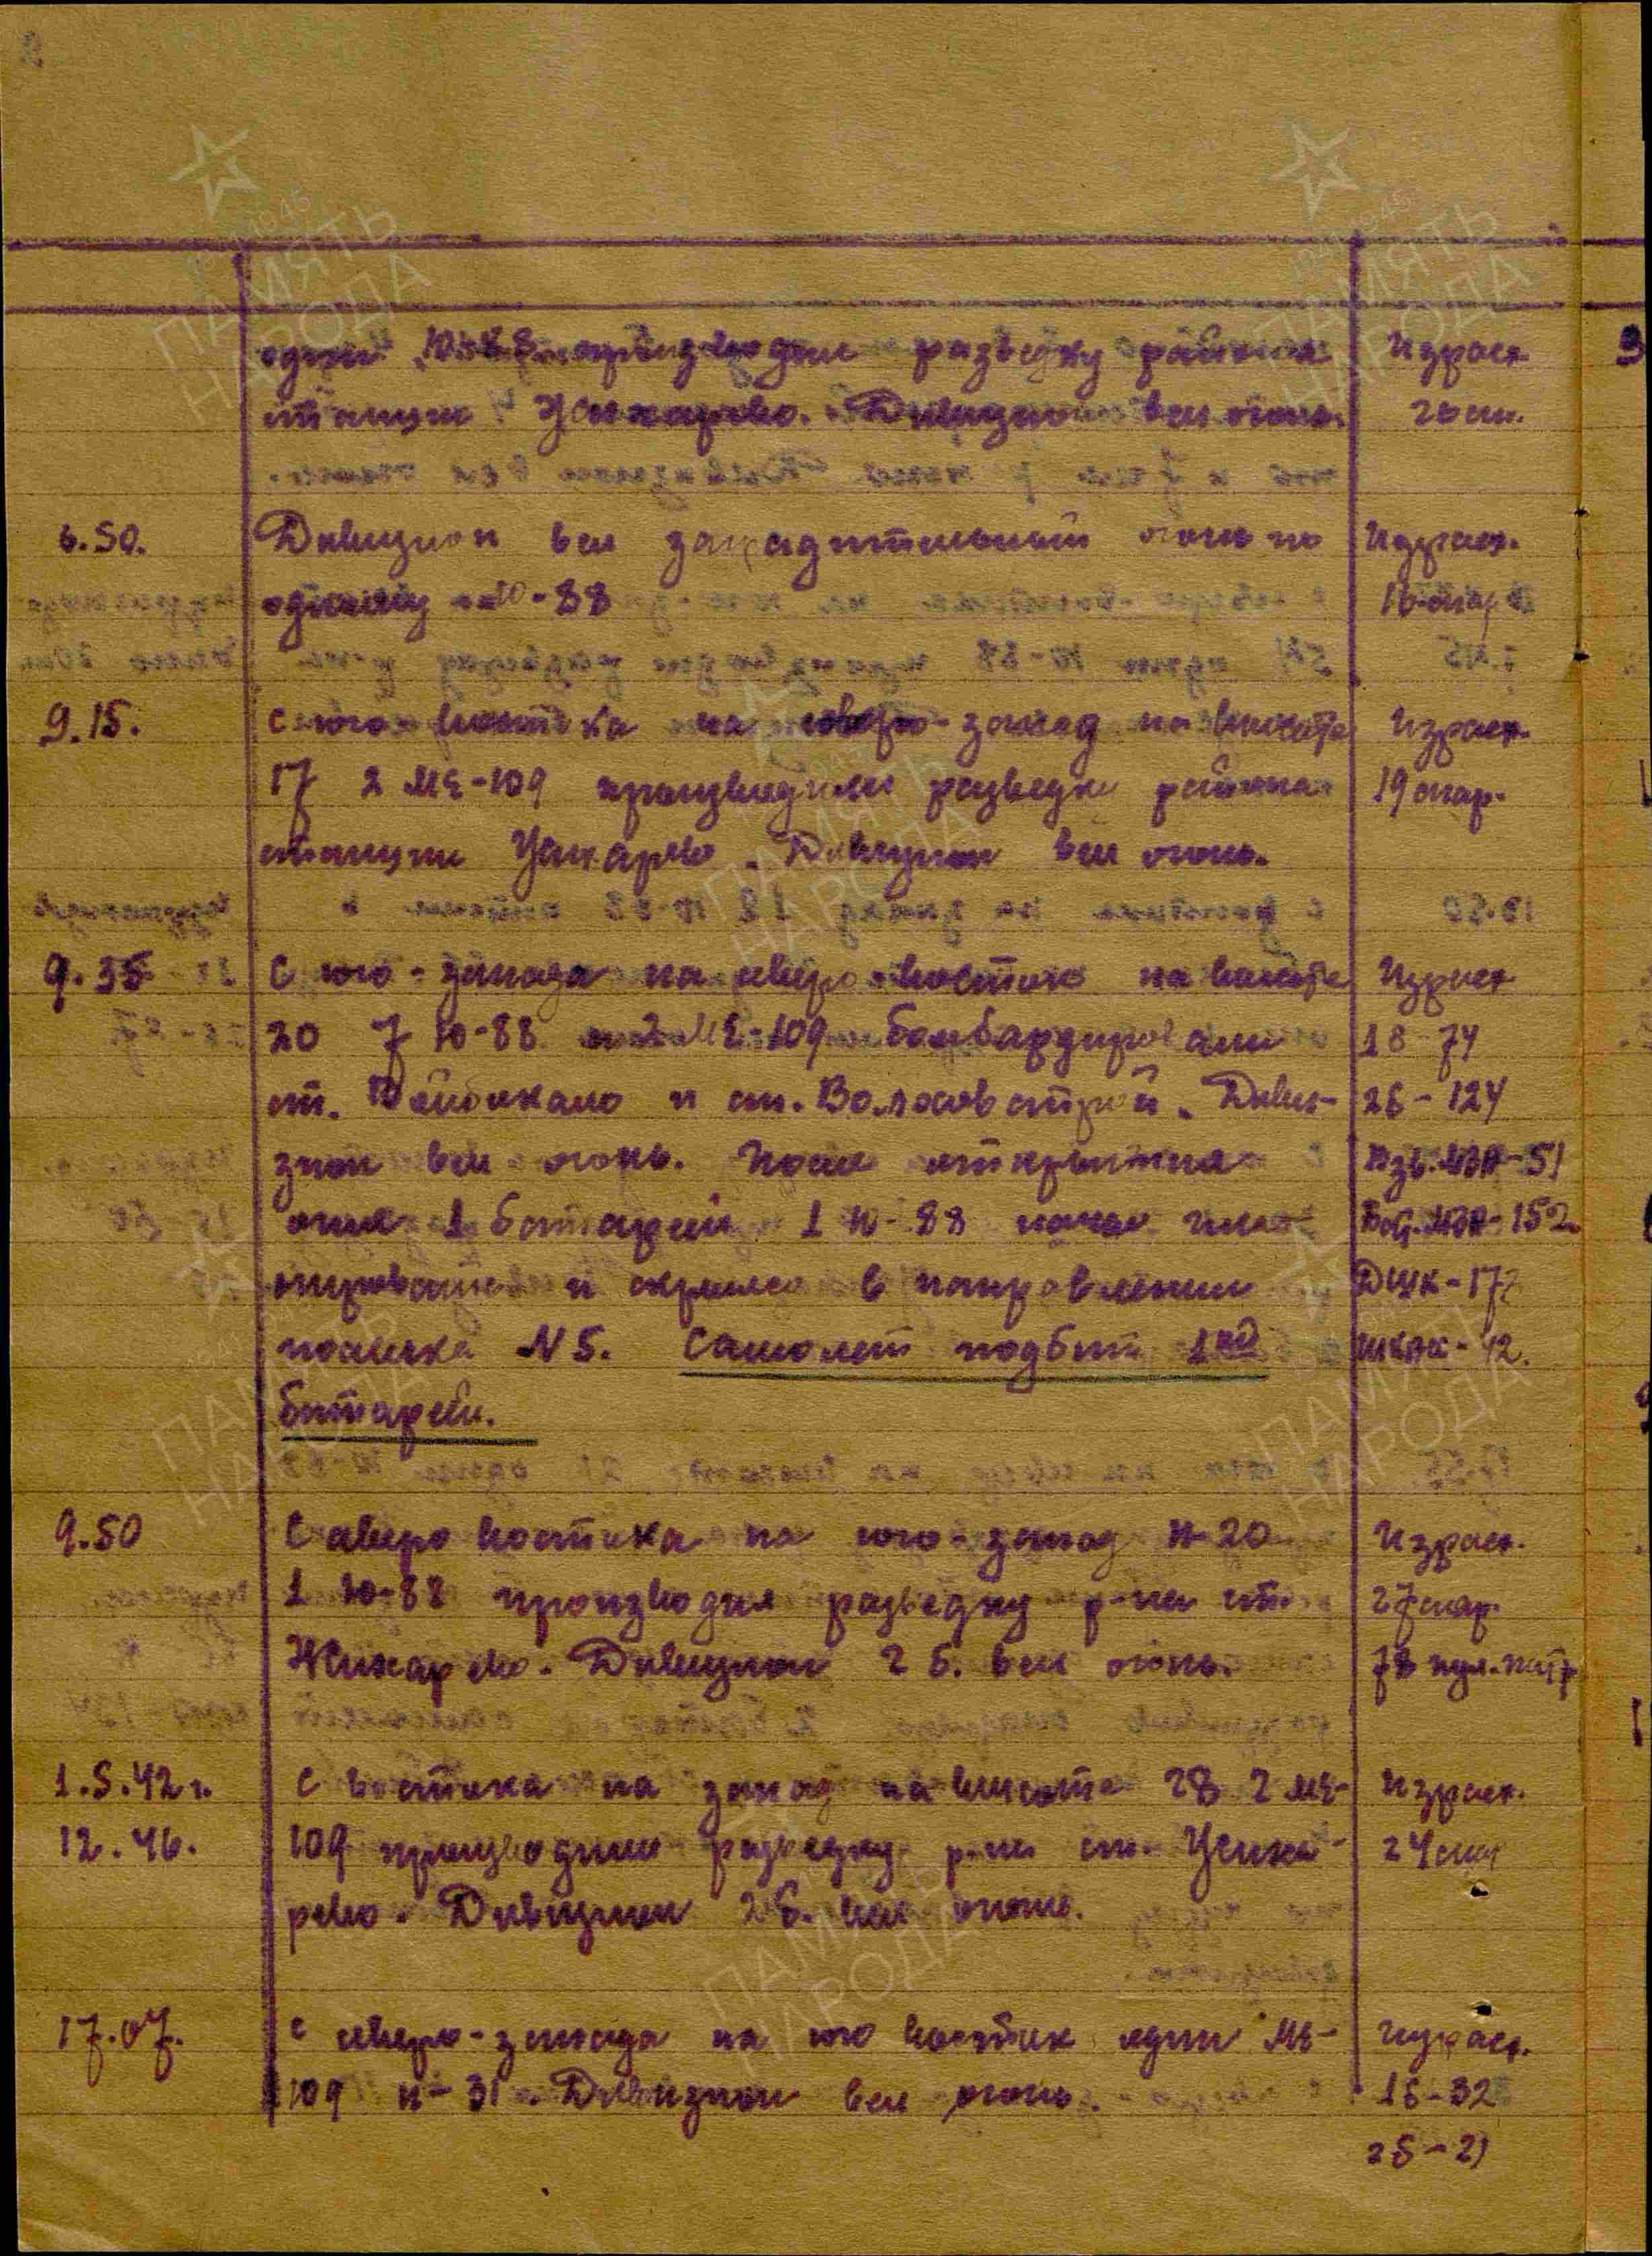 один Ю-88 производил разведку района Израсх.
станции Жихарево. Дивизион вел огонь. 26 сн.
6.50. Дивизион вел заградительный огонь по Израсх.
одному Ю-88 16 снар
9.15. с юго-востока на северо-запад на высоте Израсх.
17 2 МЕ-109 производили разведку района 19 снар.
станции Жихарево. Дивизион вел огонь.
9.35 С юго-запада на северо-восток на высоте Израсх
20 7 Ю-88 и 2 МЕ-109 бомбардировали 1б-74
ст. Войбокало и ст. Волховстрой. Диви- 2б-124
зион вел огонь. После открытия Взв. МЗА-51
огня 1 батареей 1 Ю-88 начал Бат. МЗА-152
и скрылся в направлении ДШК-17
поселка N5. Самолет подбит 1ой ШКАС-42.
батареей.
9.50 С северо востока на юго-запад Н-20 Израсх.
1 Ю-88 производил разведку р-на ст. 27 снар.
Жихарево. Дивизион 2 б. вел огонь. 78 пул. патр
1.5.42 г. с востока на запад на высоте 28 2 МЕ- Израсх.
12.46. 109 производили разведку р-на ст. Жиха- 24 снар
рево. Дивизион 2 б. вел огонь.
17.07. с северо-запада на юго восток один МЕ- Израсх.
109 Н-31. Дивизион вел огонь. 1б-32
2б-21
ПАМЯТЬ
НАРОДА